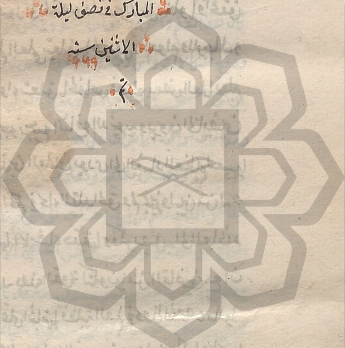 المبارك في نصف ليلة
الاثنين سنه
٩٤٩
تم